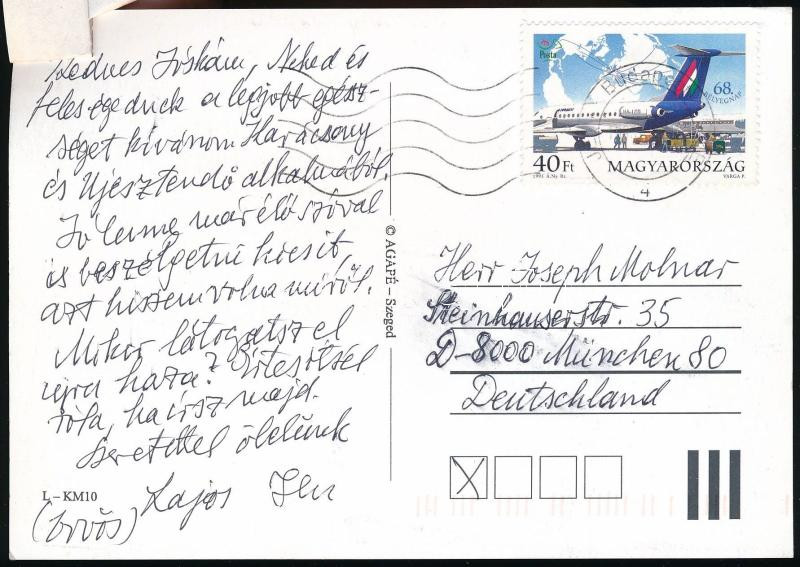 Kedves Jóskám, Neked és
feleségednek a legjobb egész-
séget kívánom Karácsony
és Újesztendő alkalmából.
Jó lenne már élőszóval
is beszélgetni kicsit,
azt hiszem volna miről.
Mikor látogatsz el
újra haza? Értesítsél
róla, ha írsz majd.
Szeretettel ölelünk
Lajos
(orvos)
L – KM10
© AGAPÉ – Szeged
Posta
68.
BÉLYEGNAP
40 Ft
MAGYARORSZÁG
VARGA P.
Budapest
4
Herr Joseph Molnar
Steinhauserstr. 35
D-8000 München 80
Deutschland